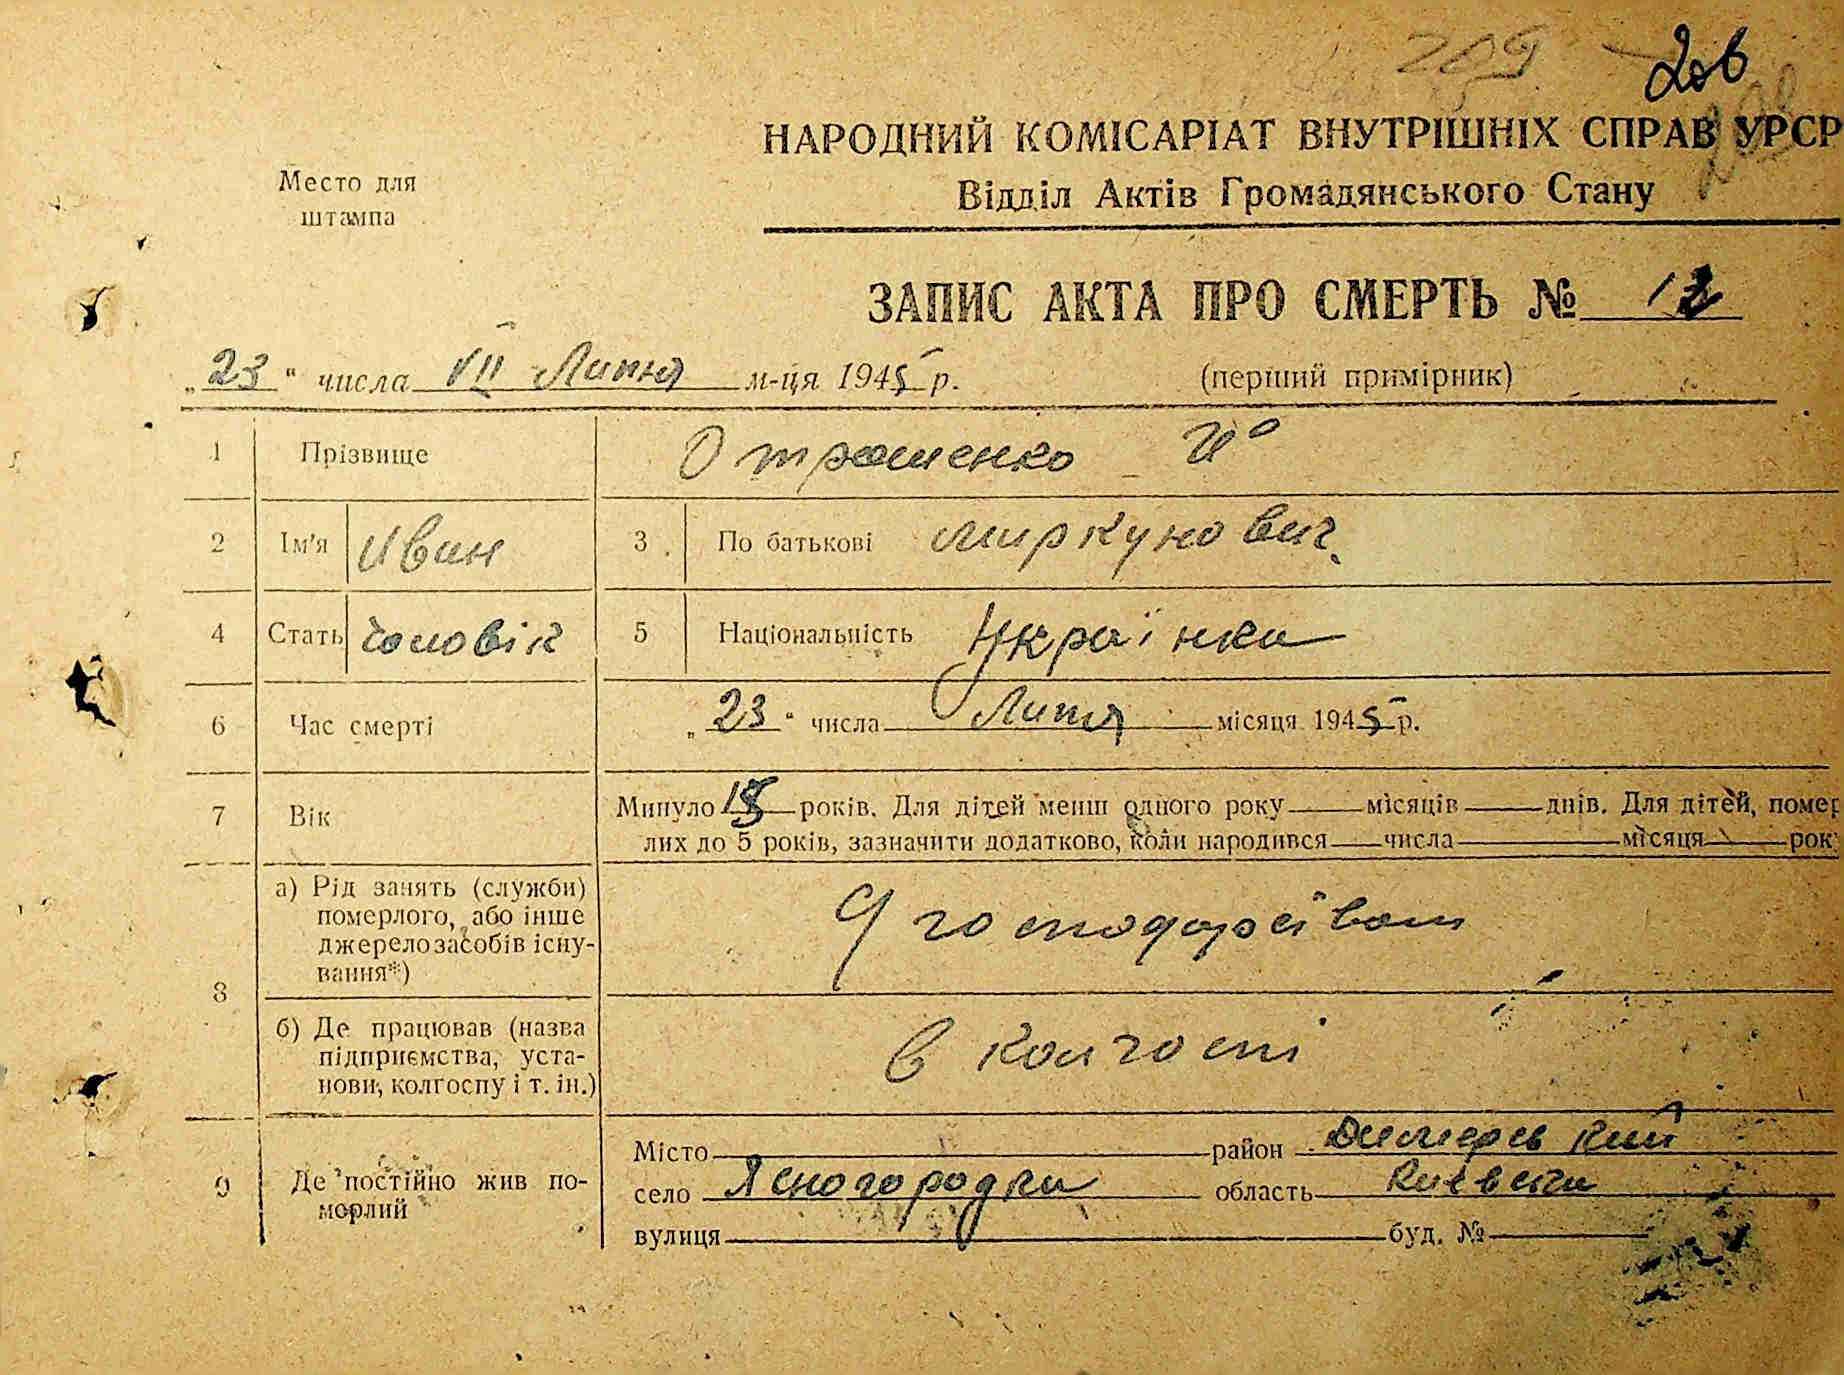 209
206
НАРОДНИЙ КОМІСАРІАТ ВНУТРІШНІХ СПРАВ УРСР
Место для
штампа
Відділ Актів Громадянського Стану
ЗАПИС АКТА ПРО СМЕРТЬ №
„23“ числа VII Липня м-ця 1945 р. (перший примірник)
1 Прізвище Отрошенко
2 Ім'я Иван 3 По батькові Миркунович
4 Стать Чоловік 5 Національність Українка
6 Час смерті „23“ числа Липня місяця 1945 р.
7 Вік Минуло 15 років. Для дітей менш одного року місяців днів. Для дітей, помер
лих до 5 років, зазначити додатково, коли народився числа місяця рок
8 а) Рід занять (служби)
померлого, або інше
джерело засобів існу-
вання*)
У господарсівом
б) Де працював (назва
підприємства, уста-
нови, колгоспу і т. ін.)
в колгоспі
9 Де постійно жив по-
мерлий
Місто район Димерський
село Ясногородка область Киевска
вулиця буд. №